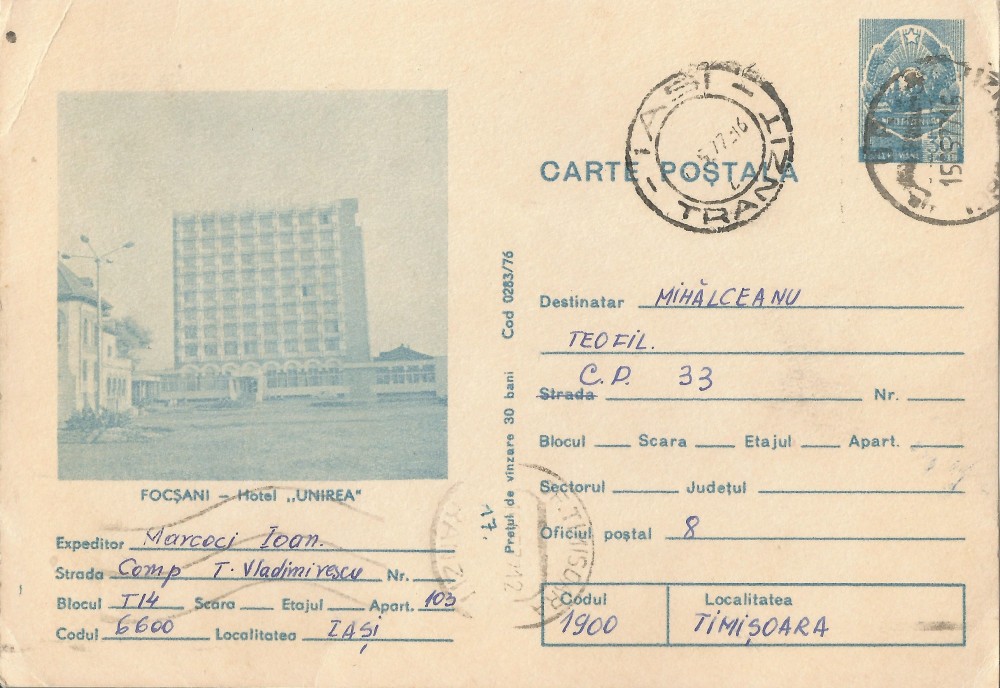 IAȘI - TRANZIT
5.77.-16
CARTE POȘTALĂ
15.9.77-16
FOCȘANI – Hotel „UNIREA"
Expeditor Marcoci Ioan.
Strada Comp T. Vladimirescu Nr.
Blocul T14 Scara Etajul Apart. 103
Codul 6600 Localitatea IAȘI
Prețul de vînzare 30 bani Cod 0283/76
Destinatar MIHĂLCEANU
TEOFIL.
C.P. 33
Strada Nr.
Blocul Scara Etajul Apart.
Sectorul Județul
Oficiul poștal 8
Codul Localitatea
1900 TIMIȘOARA
TIMISOARA